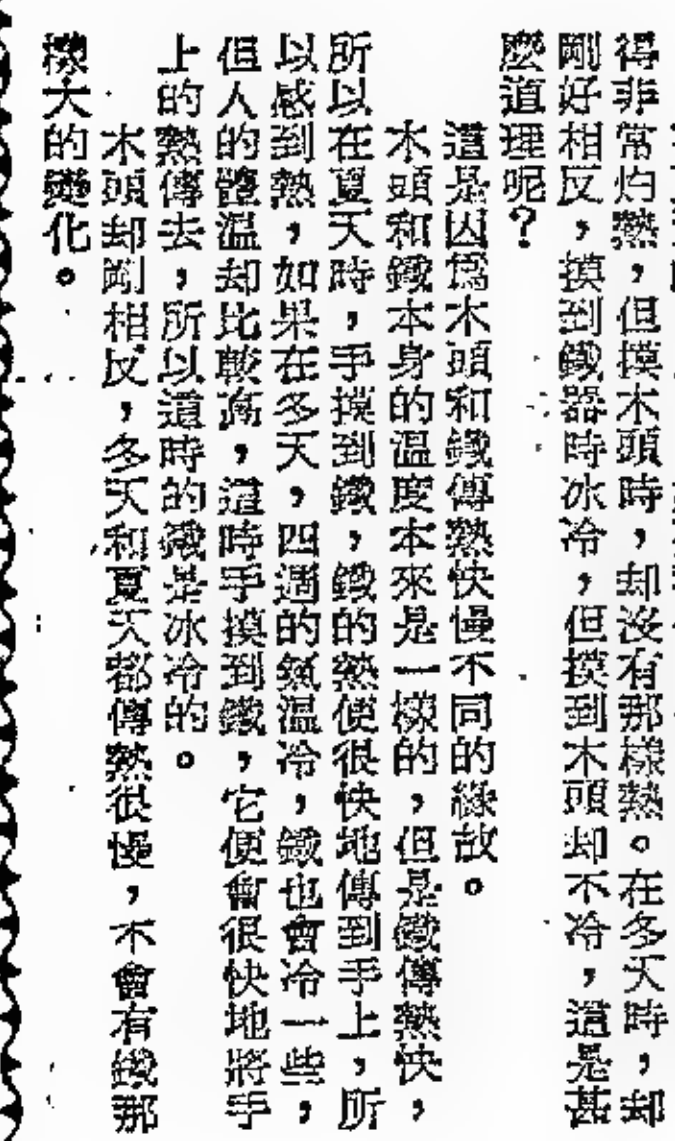 得非常灼熱，但摸木頭時，却沒有那樣熱。在冬天時，却
剛好相反，摸到鐵器時冰冷，但摸到木頭却不冷，這是甚
麽道理呢？
這是因爲木頭和鐵傳熱快慢不同的緣故。
木頭和鐵本身的溫度本來是一樣的，但是鐵傳熱快，
所以在夏天時，手摸到鐵，鐵的熱便很快地傳到手上，所
以感到熱，如果在冬天，四週的氣温冷，鐵也會冷一些，
但人的體溫却比較高，這時手摸到鐵，它便會很快地將手
上的熱傳去，所以這時的鐵是冰冷的。
木頭却剛相反，冬天和夏天都傳熱很慢，不會有鐵那
樣大的變化。